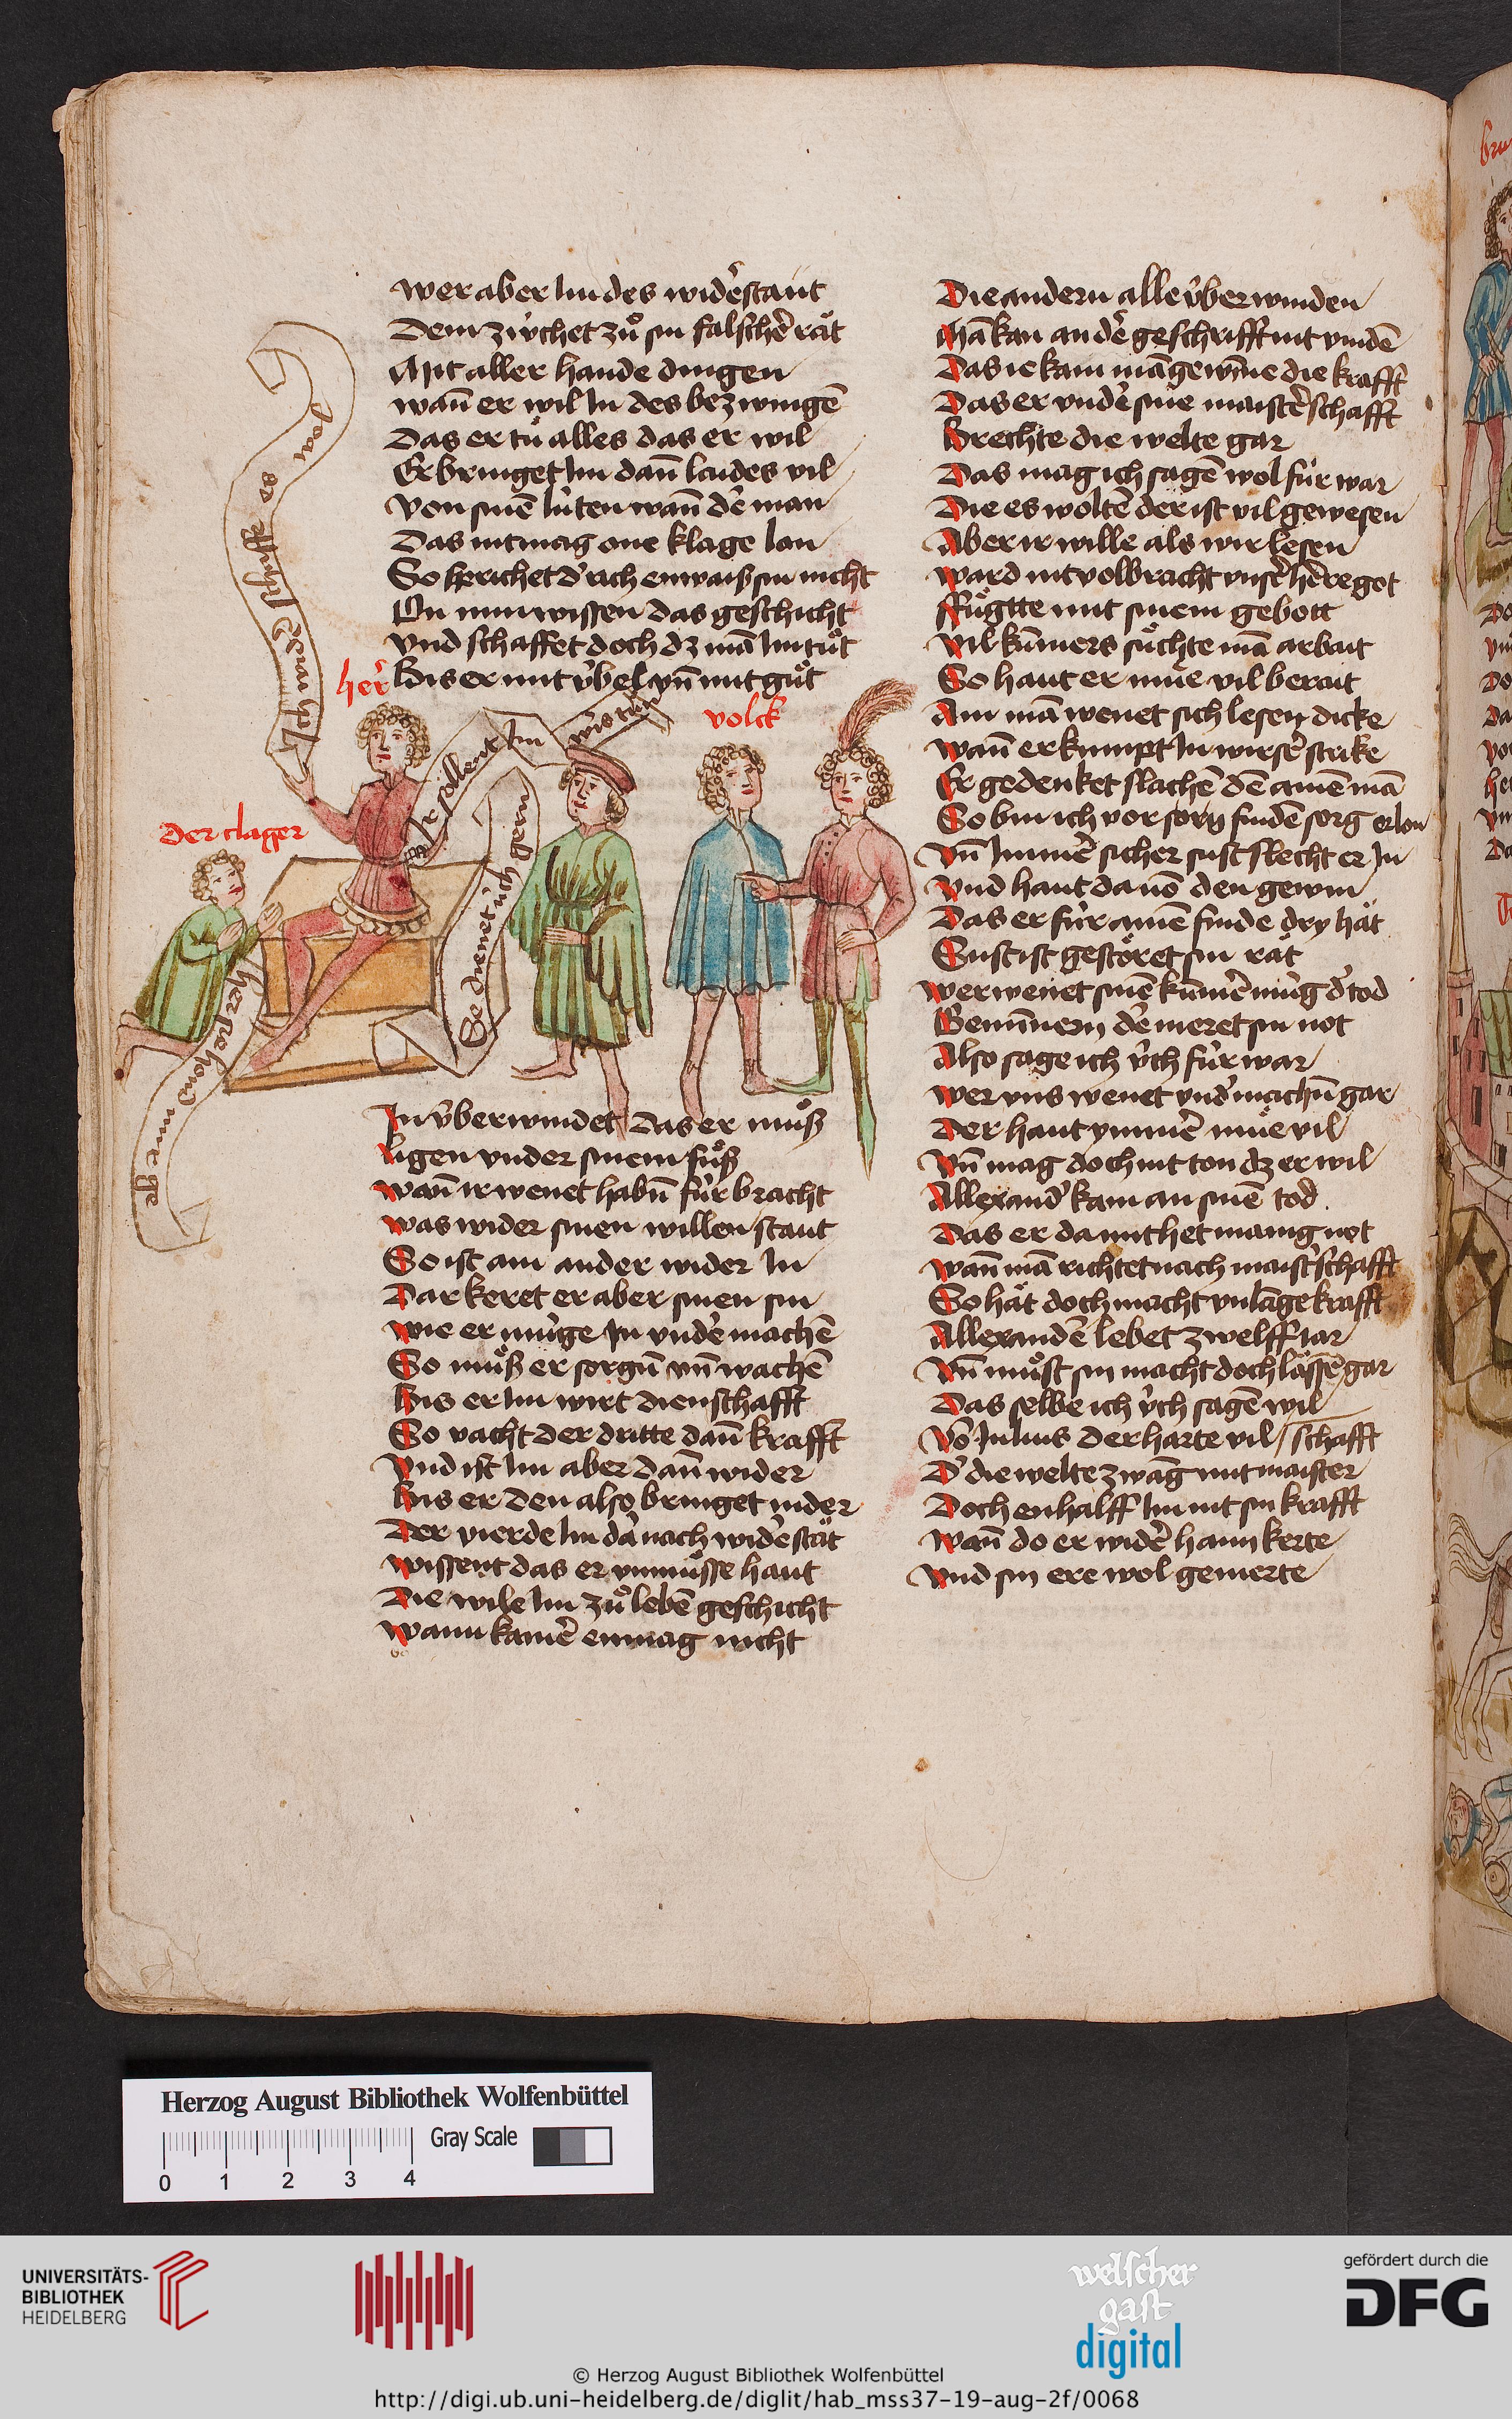 wer aber Im des widẻstant
Dem zúchet zuͦ sin falschẻ raͤt
Mit aller hande dingen
wañ er wil In des bezwingē
Das er tuͦ alles das er wil
Er bringet Im dañ laides vil
von sinē lúten wañ dẻ man
Das nit mag one klage lan
So sprichet dˀ ich enwaiß sin nicht
On min wissen das geschicht
vnd schaffet doch dz mā Im tuͦt
Bis er mit v́bel vñ mit guͦt
herˀ
volck
der clager
Ich enwaiß
Ir sillent Im
wis tun
Se dienet úch gern
her gehond mir ge
In v́berwindet das er muͦß
ligen vnder sinem fuͦß
wañ ir wenet habñ fúr bracht
was wider sinen willen stant
So ist ain ander wider In
Dar keret er aber sinen sin
wie er múge In vndẻ machē
So muͦß er sorgñ vñ wachē
Bis er Im wirt dienschafft
So vacht der dritte dañ krafft
Vnd ist Im aber dañ wider
Bis er den also bringet nider
Der vierde Im dȧ nach widẻ staͤt
wissent das er vnmuͦsse hant
Die wile Im zuͦ lebē geschicht
wann kainẻ enmag nicht
Die andern alle v́berwinden
Mā kan an dẻ geschrifft nit vindē
Das ie kain mā gewīne die krafft
Das er vndẻ sine maistẻschafft
Brechte die welte gar
Das mag ich sagē wol fúr war
Die es woltē der ist vil gewesen
Aber ir wille als wir lesen
ward nit volbracht vnsẻ heͤre got
Fuͤgtte mit sinem gebott
vil kūmers suͦchte mā arbait
So hant er muͤe vil berait
Ain mā wenet sich lesen dicke
wañ er kumpt In wirsẻ stricke
Er gedenket slachē dē ainē mā
So bin ich vor sorg sindē sorg erlon
Vñ Immẻ sicher sust slecht er In
Vnd hant dauō den gewin
Das er fúr ainē finde dry haͤt
Sust ist gestoͤret sin raͤt
wer wenet sinē kūmẻ múg dˀ tod
Benīmen dẻ meret sin not
Also sage ich v́ch fúr war
wer vns wenet vndˀ machñ gar
Der hant ymmẻ muͤe vil
Vñ mag doch nit ton dz er wil
Allexandˀ kam an sinē tod
Das er da mit het manig not
wañ mā richtet nach maistˀschafft
So haͤt doch macht vnlāge krafft
Allexandẻ lebet zwelff iar
Vñ muͦst sin macht doch laͤssē gar
Das selbe ich v́ch sagē wil
Vō Julius der harte vil / schafft
Dˀ die welte zwāg mit maister
Doch enhalff Im nit sin krafft
wañ do er widẻ haim kerte
Vnd sin ere wol gemerte
Herzog August Bibliothek Wolfenbüttel
Gray Scale
0 1 2 3 4
UNIVERSITÄTS-
BIBLIOTHEK
HEIDELBERG
welscher
gast
digital
gefördert durch die
DFG
© Herzog August Bibliothek Wolfenbüttel
http://digi.ub.uni-heidelberg.de/diglit/hab_mss37-19-aug-2f/0068